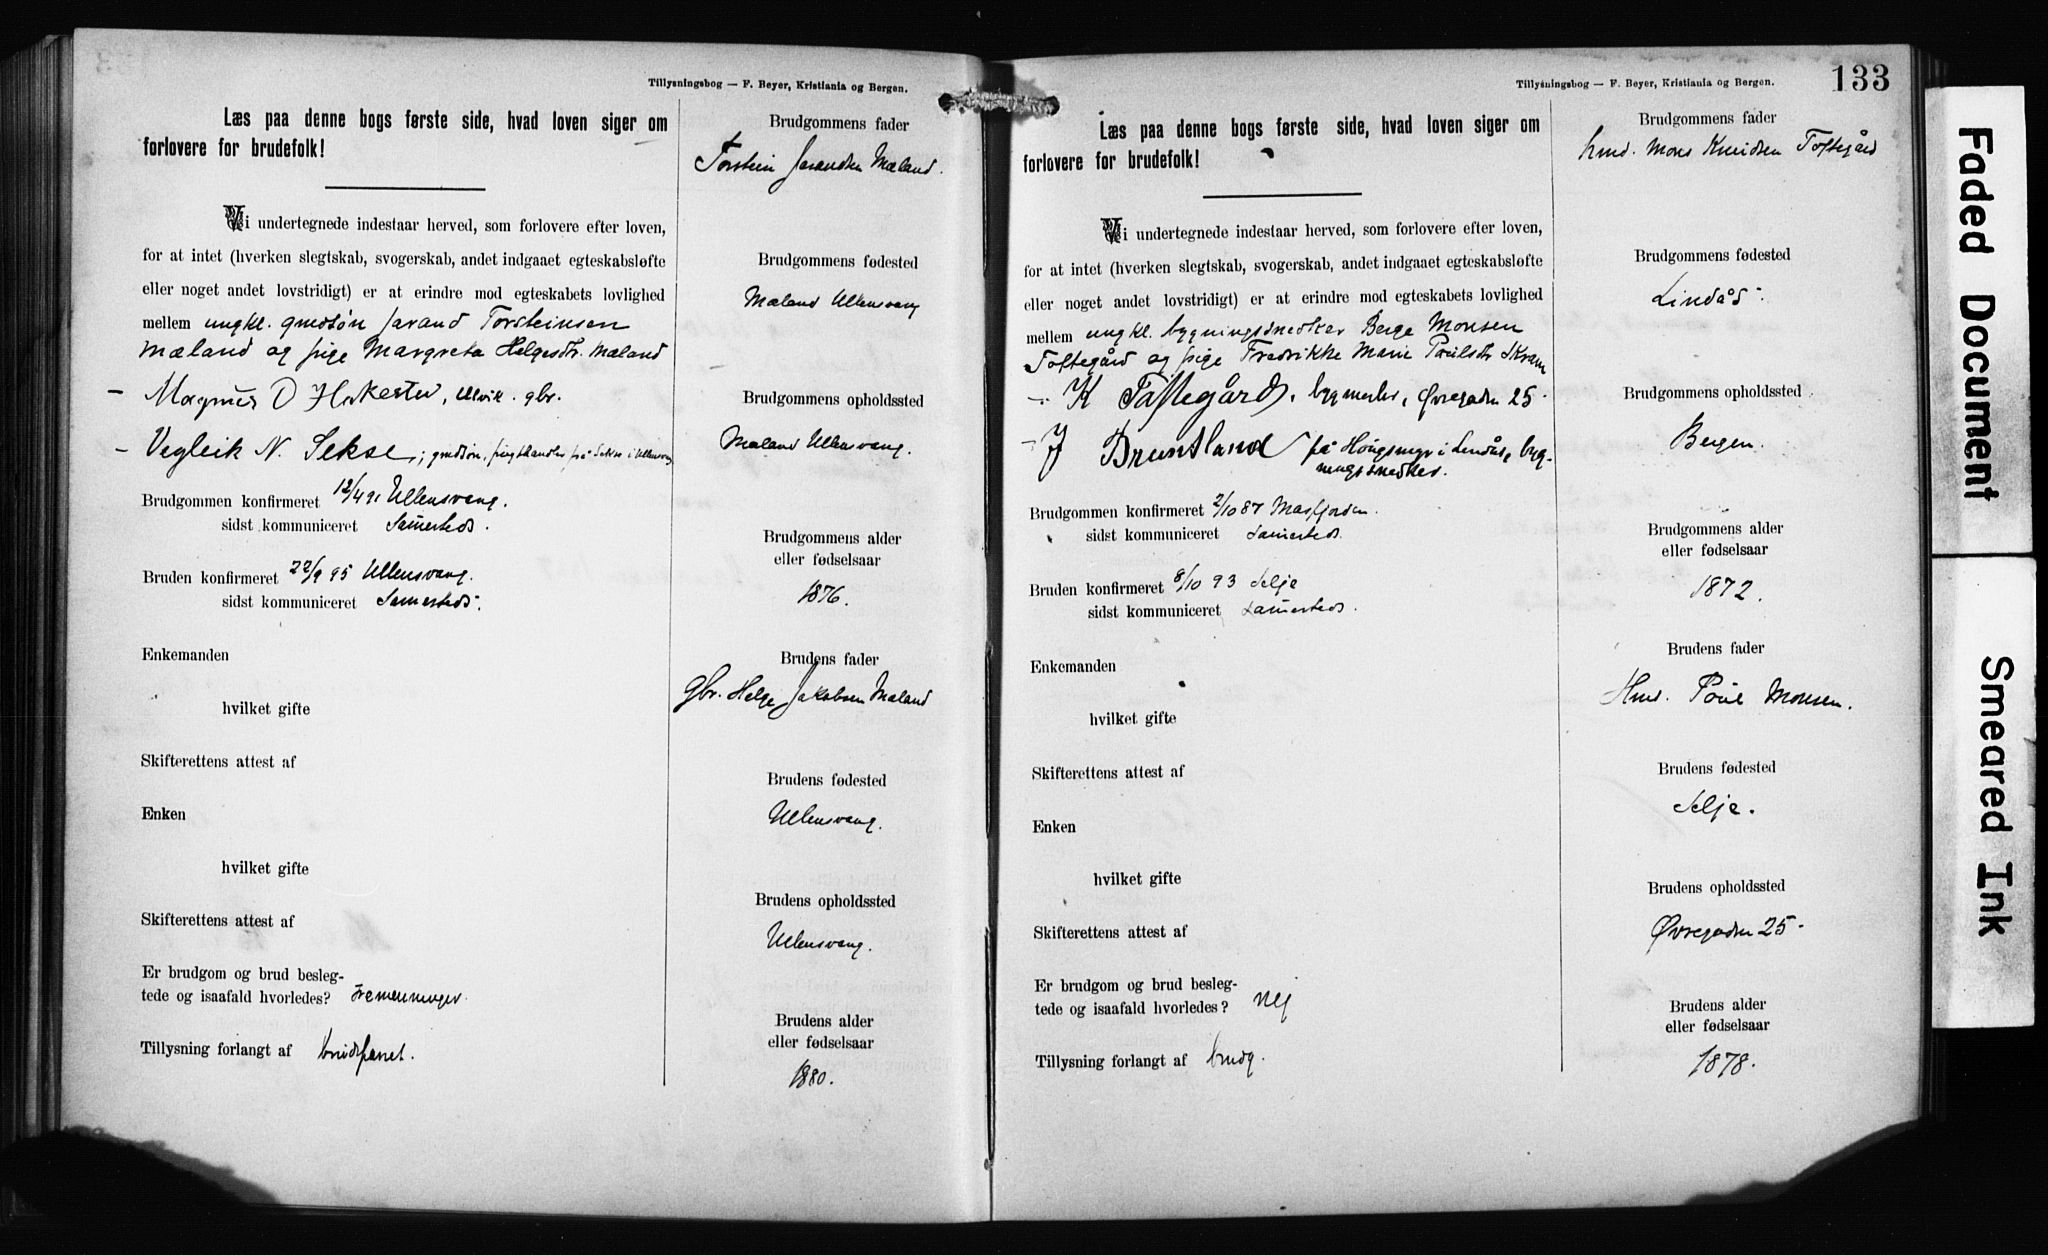 Tillysningsbog — F. Beyer, Kristiania og Bergen.
Læs paa denne bogs første side, hvad loven siger om
forlovere for brudefolk!
Vi undertegnede indestaar herved, som forlovere efter loven,
for at intet (hverken slegtskab, svogerskab, andet indgaaet egteskabsløfte
eller noget andet lovstridigt) er at erindre mod egteskabets lovlighed
mellem ungkl. gmdsøn Jarand Torsteinsen
Mæland og pige Margreta Helgesdtr. Mæland
- Magnus O Hakestad, Ulvik. gbr.
- Vegleik N. Sekse; gmdsøn, frugthandler på Sekse i Ullensvang
Brudgommen konfirmeret 12/4 91 Ullensvang.
sidst kommuniceret Samesteds.
Bruden konfirmeret 22/9 95 Ullensvang.
sidst kommuniceret Samesteds.
Enkemanden
hvilket gifte
Skifterettens attest af
Enken
hvilket gifte
Skifterettens attest af
Er brudgom og brud besleg-
tede og isaafald hvorledes? Fremenninger.
Tillysning forlangt af brudparret.
Brudgommens fader
Torstein Jarandsen Mæland.
Brudgommens fødested
Mæland Ullensvang
Brudgommens opholdssted
Mæland Ullensvang.
Brudgommens alder
eller fødselsaar
1876.
Brudens fader
Gbr. Helge Jakobsen Mæland
Brudens fødested
Ullensvang.
Brudens opholdssted
Ullensvang.
Brudens alder
eller fødselsaar
1880.
Tillysningsbog — F. Beyer, Kristiania og Bergen.
133
Læs paa denne bogs første side, hvad loven siger om
forlovere for brudefolk!
Vi undertegnede indestaar herved, som forlovere efter loven,
for at intet (hverken slegtskab, svogerskab, andet indgaaet egteskabsløfte
eller noget andet lovstridigt) er at erindre mod egteskabets lovlighed
mellem ungkl. bygningssnedker Berge Monsen
Toftegård og pige Fredrikke Marie Paulsdtr Skram
- K Toftegård, bygmester, Øvregaden 25.
- J Bruntland på Hougsmyr i Lindås, byg-
ningssnedker.
Brudgommen konfirmeret 2/10 87 Masfjorden.
sidst kommuniceret Samesteds.
Bruden konfirmeret 8/10 93 Selje
sidst kommuniceret Samesteds.
Enkemanden
hvilket gifte
Skifterettens attest af
Enken
hvilket gifte
Skifterettens attest af
Er brudgom og brud besleg-
tede og isaafald hvorledes? nej
Tillysning forlangt af brudg.
Brudgommens fader
Gmd. Mons Knudsen Toftegård
Brudgommens fødested
Lindås.
Brudgommens opholdssted
Bergen.
Brudgommens alder
eller fødselsaar
1872.
Brudens fader
Hmd. Poul Monsen.
Brudens fødested
Selje.
Brudens opholdssted
Øvregaden 25.
Brudens alder
eller fødselsaar
1878.
Faded Document
Smeared Ink